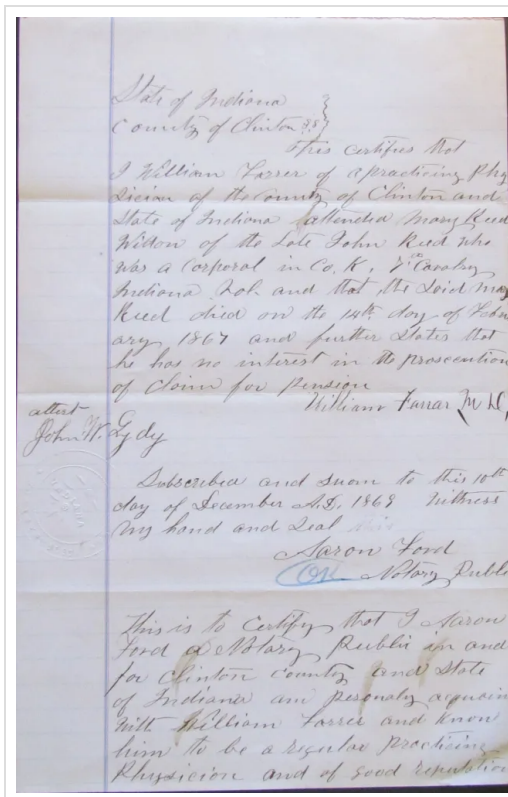 State of Indiana
County of Clinton SS
This certifies that
I William Farrer of a practicing Phy
sician of the County of Clinton and
State of Indiana attended Mary Reed
Widow of the Late John Reed who
was a Corporal in Co. K, 7th Cavalry
Indiana Vol. and that the Said Mary
Reed died on the 14th day of Febru
ary, 1867 and further States that
he has no interest in the prosecution
of Claim for Pension
William Farrar M D,
attest
John W. Lydy
Subscribed and swan to this 10th
day of December A.D. 1869 Witness
my hand and Seal this
Aaron Ford
OK Notary Publi
This is to Certify that I Aaron
Ford a Notary Public in and
for Clinton County and State
of Indiana am personaly acquain
With William Farrer and know
him to be a regular Practicing
Physician and of good reputation